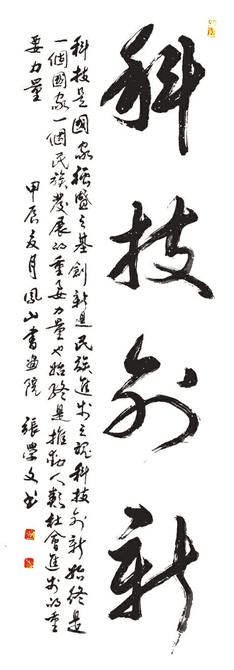 科技创新
科技是國家强盛之基創新是民族進步之魂科技創新始終是
一個國家一個民族發展的重要力量也始終是推動人類社會進步的重
要力量
甲辰夏月鳳山書畫院 張學文书